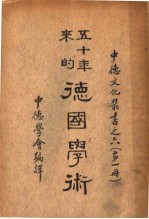 中德文化叢書之六（第一冊）
五十年來的
德國學術
中德學會編譯